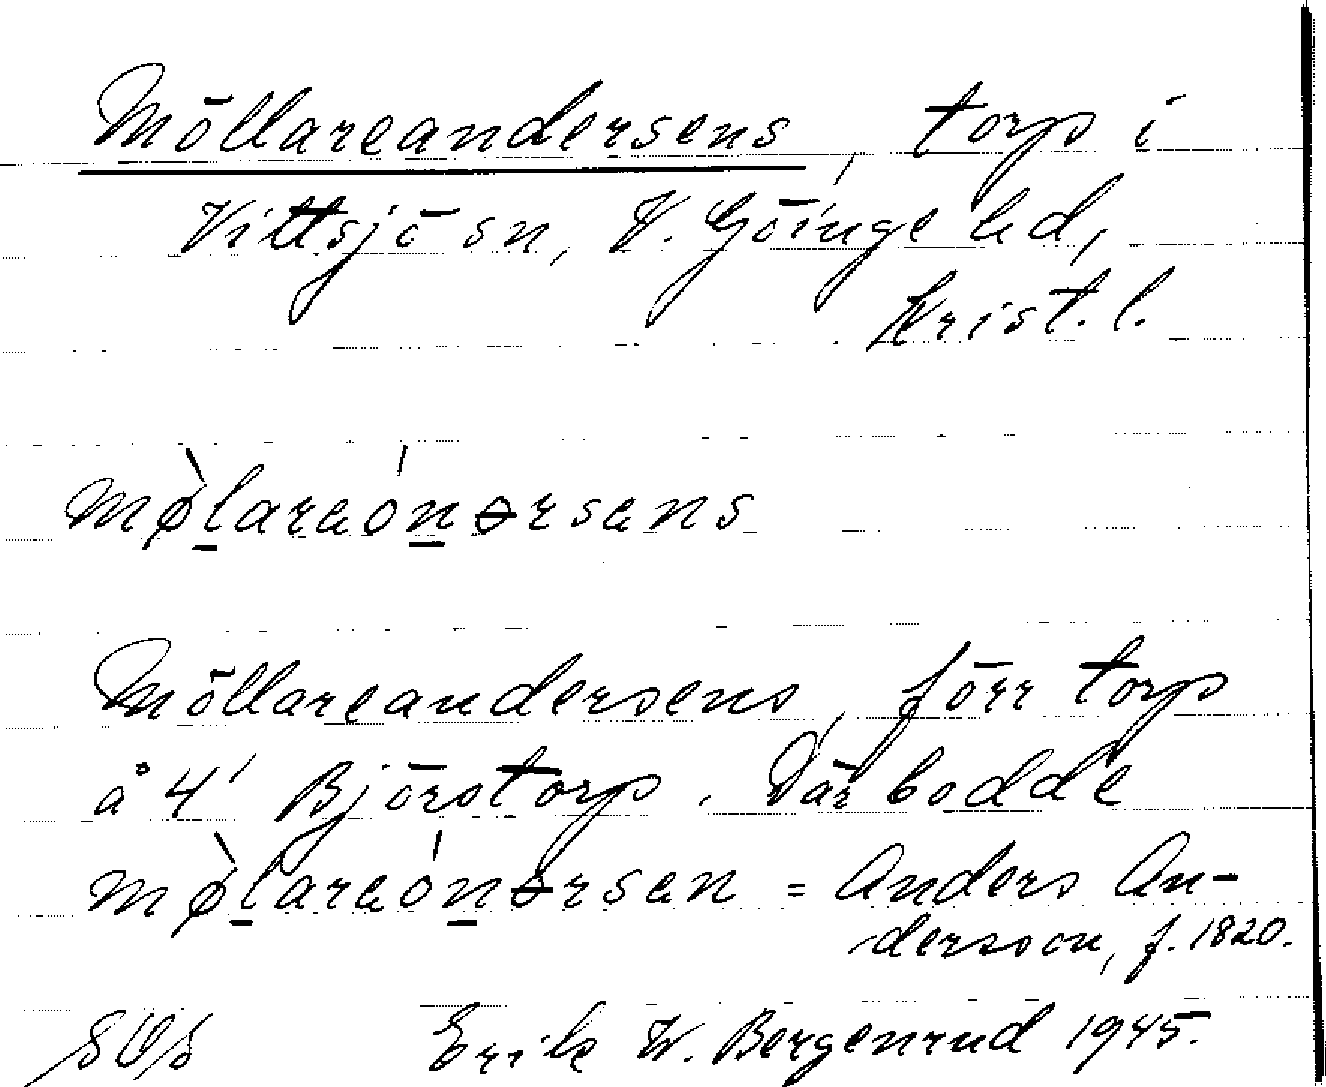 Möllareandersens, torp i
Vittsjö sn, V. Göinge hd,
Krist. l.
mø̀lareónərsens
Möllareandersens, förr torp
å 4' Björstorp. Där bodde
mø̀lareónərsen = Anders An-
dersson, f. 1820.
Erik W. Bergenrud 1945.